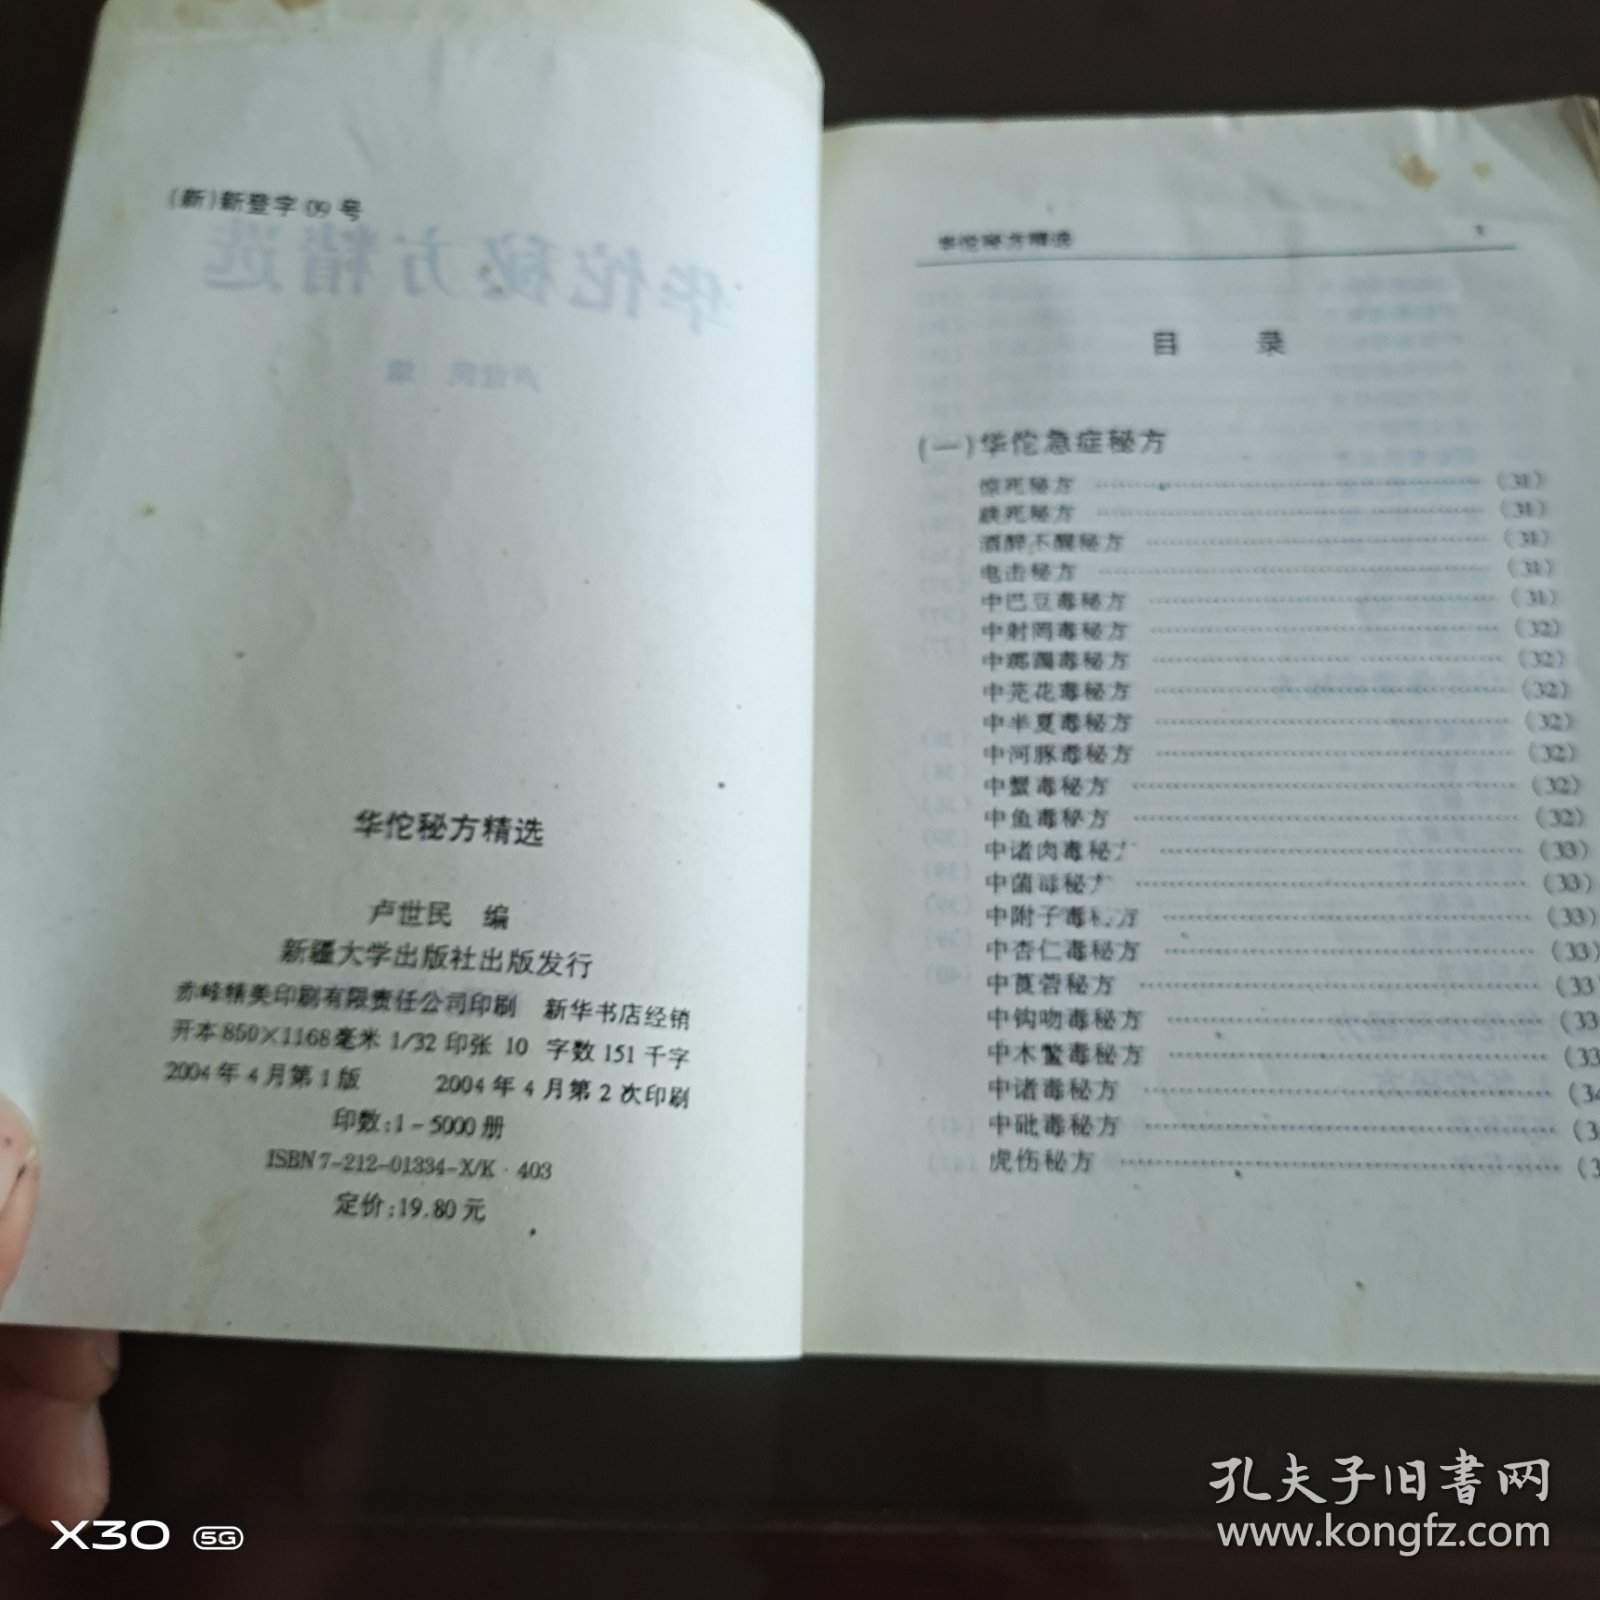 (新)新登字09号
华佗秘方精选
卢世民 编
华佗秘方精选
卢世民 编
新疆大学出版社出版发行
赤峰精美印刷有限责任公司印刷 新华书店经销
开本850×1168毫米 1/32 印张 10 字数 151 千字
2004年4月第1版 2004年4月第2次印刷
印数:1-5000册
ISBN7-212-01334-X/K·403
定价:19.80元
华佗秘方精选
目 录
(一)华佗急症秘方
惊死秘方 (31)
跌死秘方 (31)
酒醉不醒秘方 (31)
电击秘方 (31)
中巴豆毒秘方 (31)
中射罔毒秘方 (32)
中踯躅毒秘方 (32)
中芫花毒秘方 (32)
中半夏毒秘方 (32)
中河豚毒秘方 (32)
中蟹毒秘方 (32)
中鱼毒秘方 (32)
中诸肉毒秘方 (33)
中菌毒秘方 (33)
中附子毒秘方 (33)
中杏仁毒秘方 (33)
中莨菪秘方 (33)
中钩吻毒秘方 (33
中木鳖毒秘方 (33
中诸毒秘方 (34
中砒毒秘方 (3
虎伤秘方 (3
孔夫子旧书网
www.kongfz.com
X30 5G